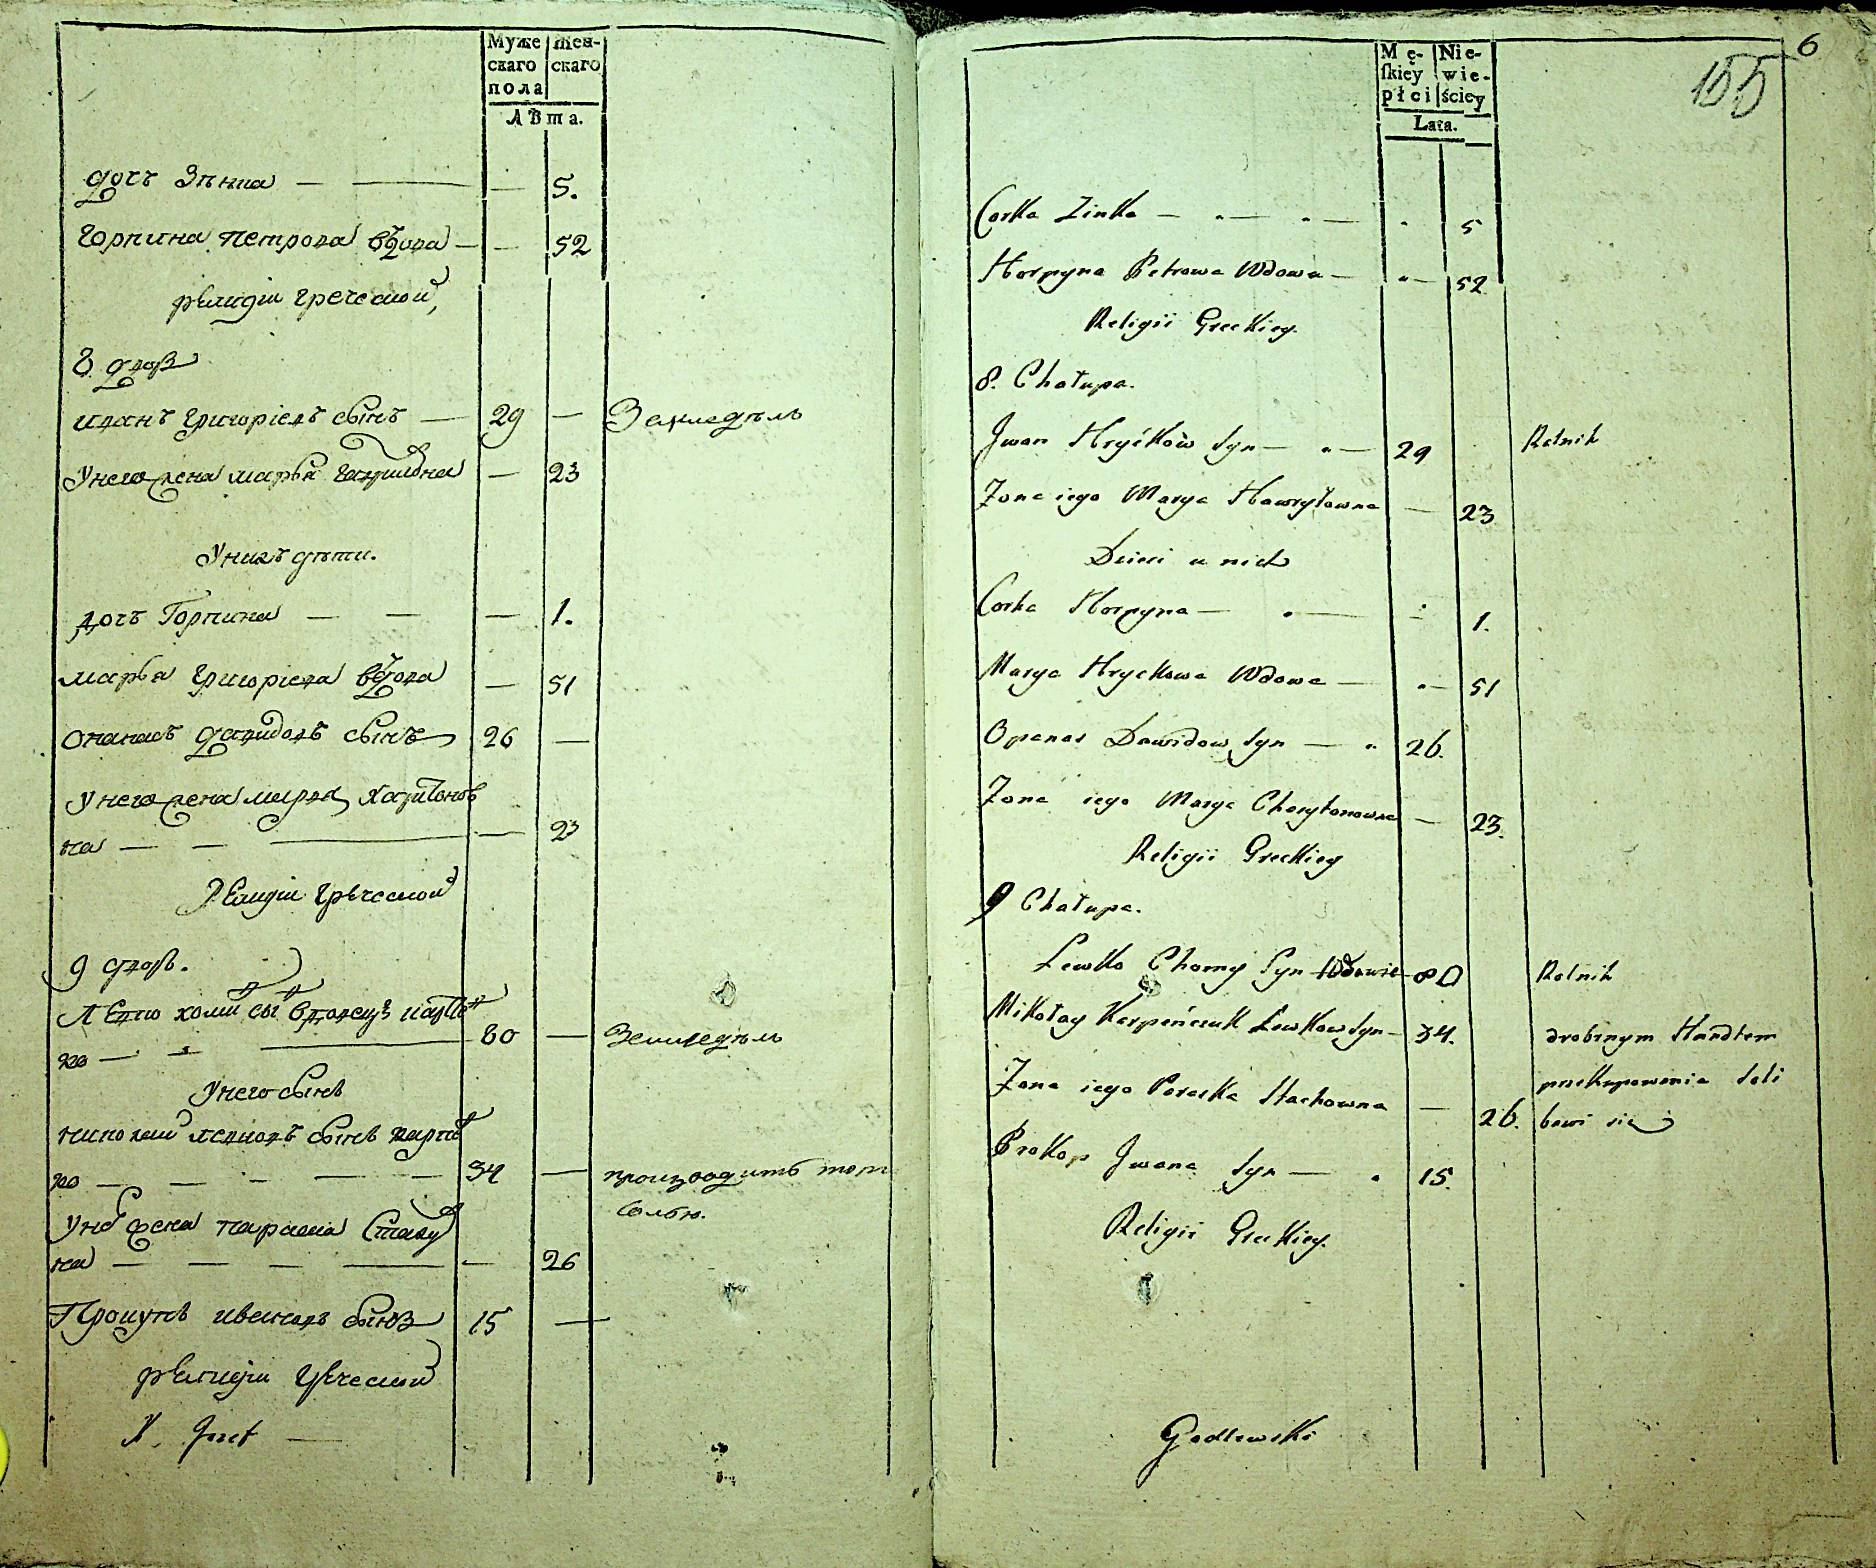 Муже Жен-
скаго скаго
пола
Лѣта.
дочь Зѣнка — — — 5.
Горпина Петрова вдова — — 52
религіи греческой,
8 двор
иванъ григоріевъ сынъ — 29 — Земледѣль
У него жена марья гаврилвна — 23
У нихъ дѣти.
дочь Горпина — — — 1.
марья григоріева вдова — 51
опанасъ давидовъ сынъ 26 —
у него жена марья харитонов
на — — — — 23
Религіи греческой
9 двор.
Левко хоми сы вдовецъ карпѣн
ко — — — 80 — Земледѣль
У него сынъ
николай левковъ сынъ карпѣн
ко — — — — — 34 — производитъ торг
солью.
У не жена параска Стахов
на — — — — — 26
Прокупъ ивановъ сынъ 15 —
религіи греческой
6
155
Mę- Nie-
ſkiey wie-
płci ściey
Lata.
Corka Zinka — — — 5
Horpyna Petrowa Wdowa — — 52
Religii Greckiey.
8. Chałupa.
Jwan Hryćków Syn — — 29 Rolnik
Zona iego Marya Hawryłowna — 23
Dzieci u nich
Corka Horpyna — — 1.
Marya Hryckowa Wdowa — — 51
Opanas Dawidow Syn — 26.
Zona iego Marya Charytonowna — 23.
Religii Greckiey
9 Chałupa.
Lewko Chomy Syn Wdowiec 80 Rolnik
Mikołay Karpeńczuk Lewkow Syn — 34. drobnym Handlem
przekupowania Soli
Zona iego Paraska Stachowna — 26. bawi się
Prokop Jwana Syn — 15.
Religii Greckiey.
Godlewski